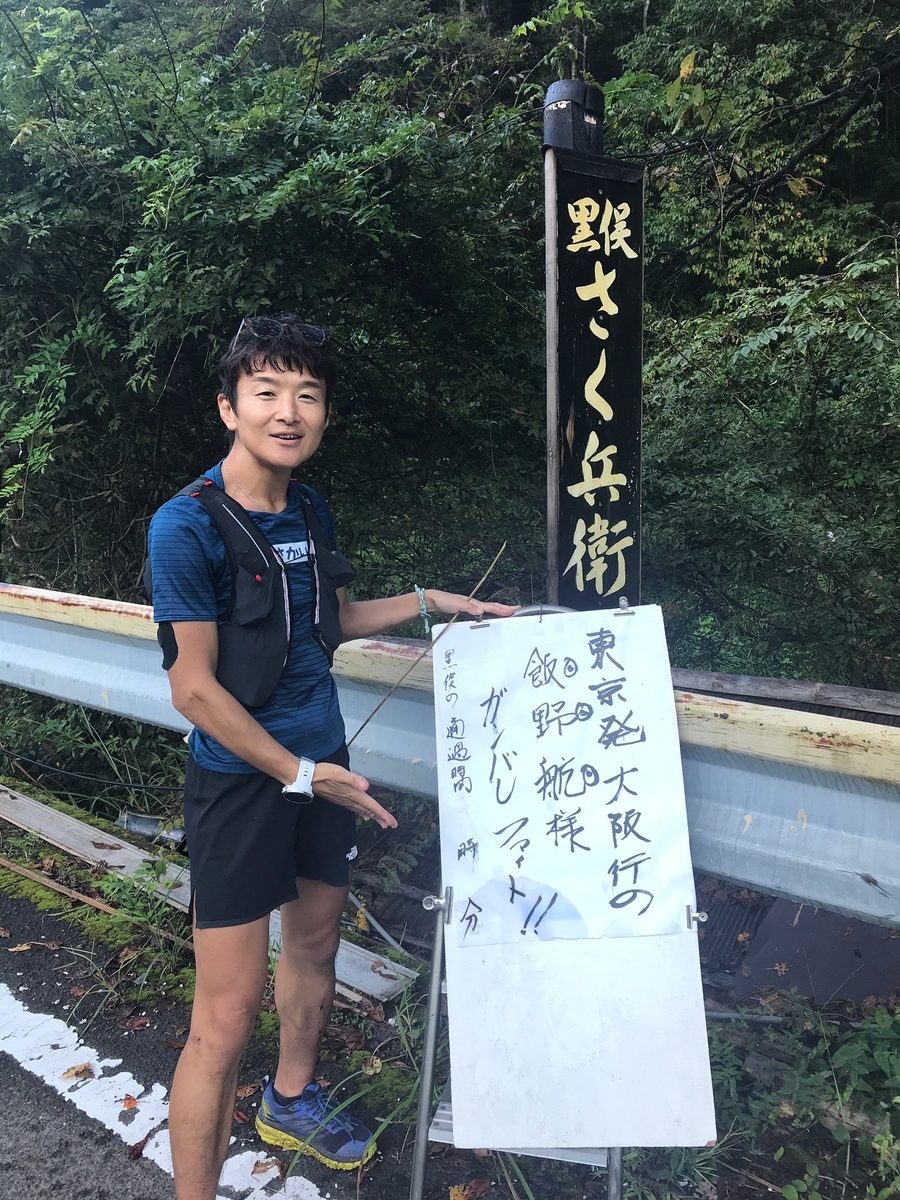 黒俣さく兵衛
東京発 大阪行の
飯野 航様
ガンバレ ファイト!!
黒俣の通過時間 時 分
さかい